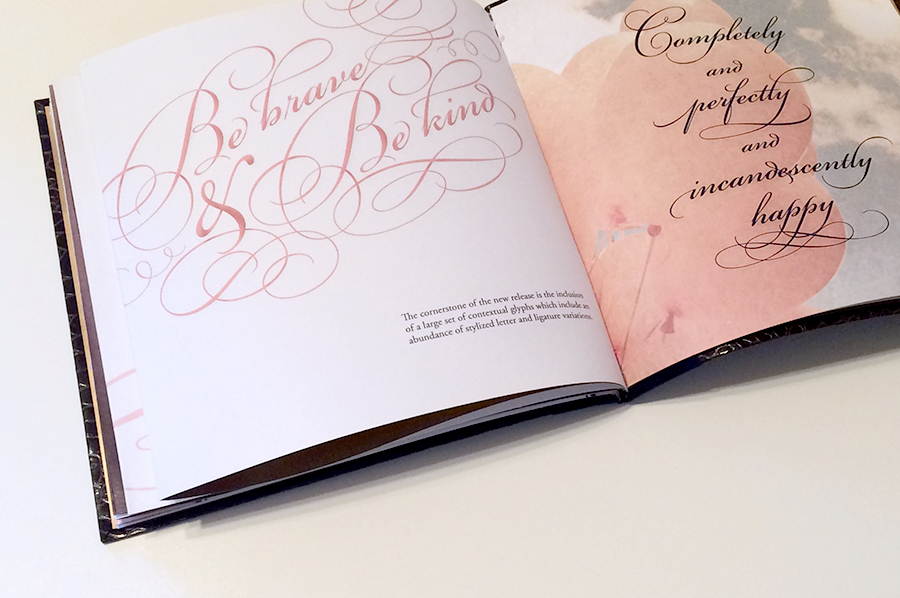 Be brave
& Be kind
The cornerstone of the new release is the inclusion
of a large set of contextual glyphs which include an
abundance of stylized letter and ligature variations.
Completely
and
perfectly
and
incandescently
happy